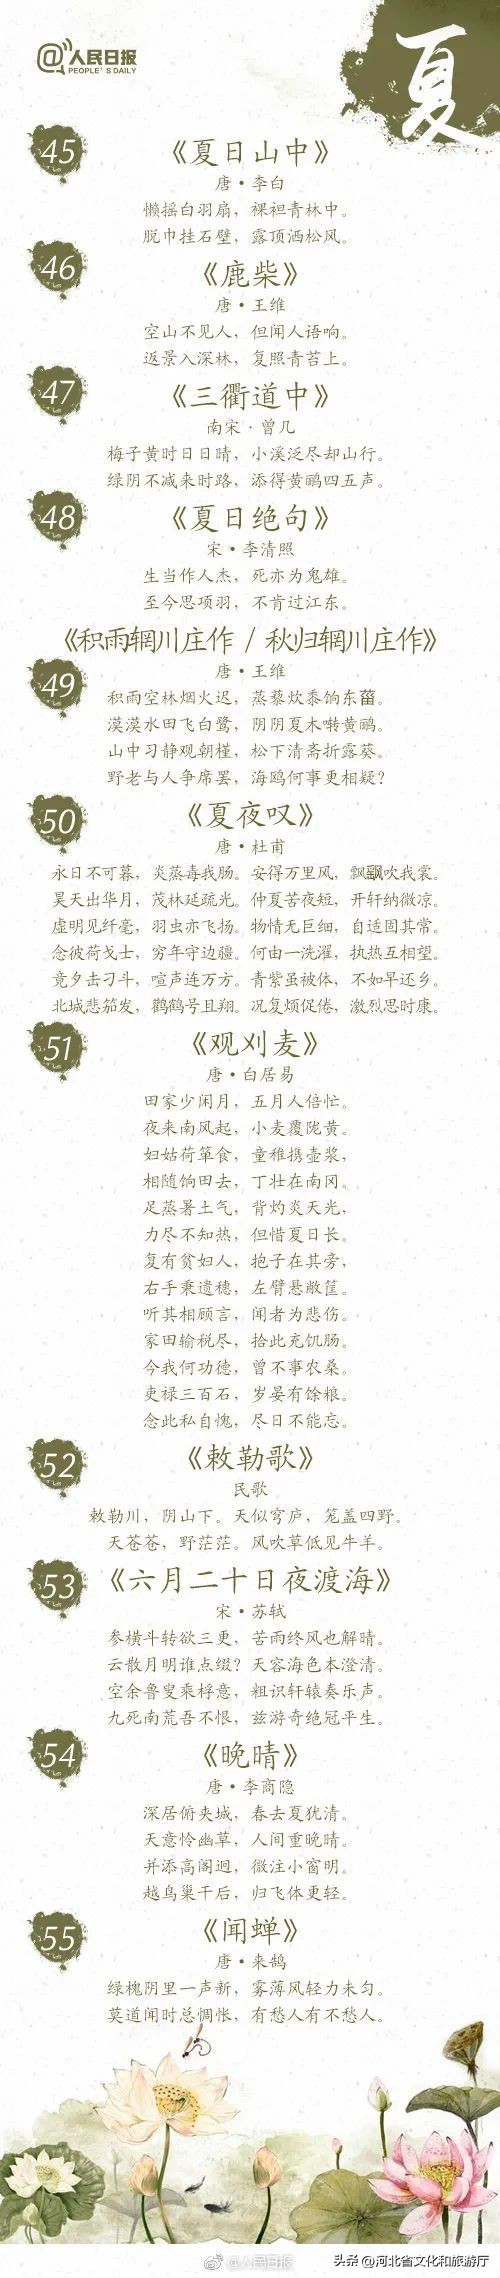 @人民日报
PEOPLE'S DAILY
夏
45
《夏日山中》
唐·李白
懒摇白羽扇，裸袒青林中。
脱巾挂石壁，露顶洒松风。
46
《鹿柴》
唐·王维
空山不见人，但闻人语响。
返景入深林，复照青苔上。
47
《三衢道中》
南宋·曾几
梅子黄时日日晴，小溪泛尽却山行。
绿阴不减来时路，添得黄鹂四五声。
48
《夏日绝句》
宋·李清照
生当作人杰，死亦为鬼雄。
至今思项羽，不肯过江东。
《积雨辋川庄作 / 秋归辋川庄作》
49
唐·王维
积雨空林烟火迟，蒸藜炊黍饷东菑。
漠漠水田飞白鹭，阴阴夏木啭黄鹂。
山中习静观朝槿，松下清斋折露葵。
野老与人争席罢，海鸥何事更相疑？
50
《夏夜叹》
唐·杜甫
永日不可暮，炎蒸毒我肠。安得万里风，飘飖吹我裳。
昊天出华月，茂林延疏光。仲夏苦夜短，开轩纳微凉。
虚明见纤毫，羽虫亦飞扬。物情无巨细，自适固其常。
念彼荷戈士，穷年守边疆。何由一洗濯，执热互相望。
竟夕击刁斗，喧声连万方。青紫虽被体，不如早还乡。
北城悲笳发，鹳鹤号且翔。况复烦促倦，激烈思时康。
51
《观刈麦》
唐·白居易
田家少闲月，五月人倍忙。
夜来南风起，小麦覆陇黄。
妇姑荷箪食，童稚携壶浆，
相随饷田去，丁壮在南冈。
足蒸暑土气，背灼炎天光，
力尽不知热，但惜夏日长。
复有贫妇人，抱子在其旁，
右手秉遗穗，左臂悬敝筐。
听其相顾言，闻者为悲伤。
家田输税尽，拾此充饥肠。
今我何功德，曾不事农桑。
吏禄三百石，岁晏有馀粮。
念此私自愧，尽日不能忘。
52
《敕勒歌》
民歌
敕勒川，阴山下。天似穹庐，笼盖四野。
天苍苍，野茫茫。风吹草低见牛羊。
53
《六月二十日夜渡海》
宋·苏轼
参横斗转欲三更，苦雨终风也解晴。
云散月明谁点缀？天容海色本澄清。
空余鲁叟乘桴意，粗识轩辕奏乐声。
九死南荒吾不恨，兹游奇绝冠平生。
54
《晚晴》
唐·李商隐
深居俯夹城，春去夏犹清。
天意怜幽草，人间重晚晴。
并添高阁迥，微注小窗明。
越鸟巢干后，归飞体更轻。
55
《闻蝉》
唐·来鹄
绿槐阴里一声新，雾薄风轻力未匀。
莫道闻时总惆怅，有愁人有不愁人。
@人民日报
头条 @河北省文化和旅游厅